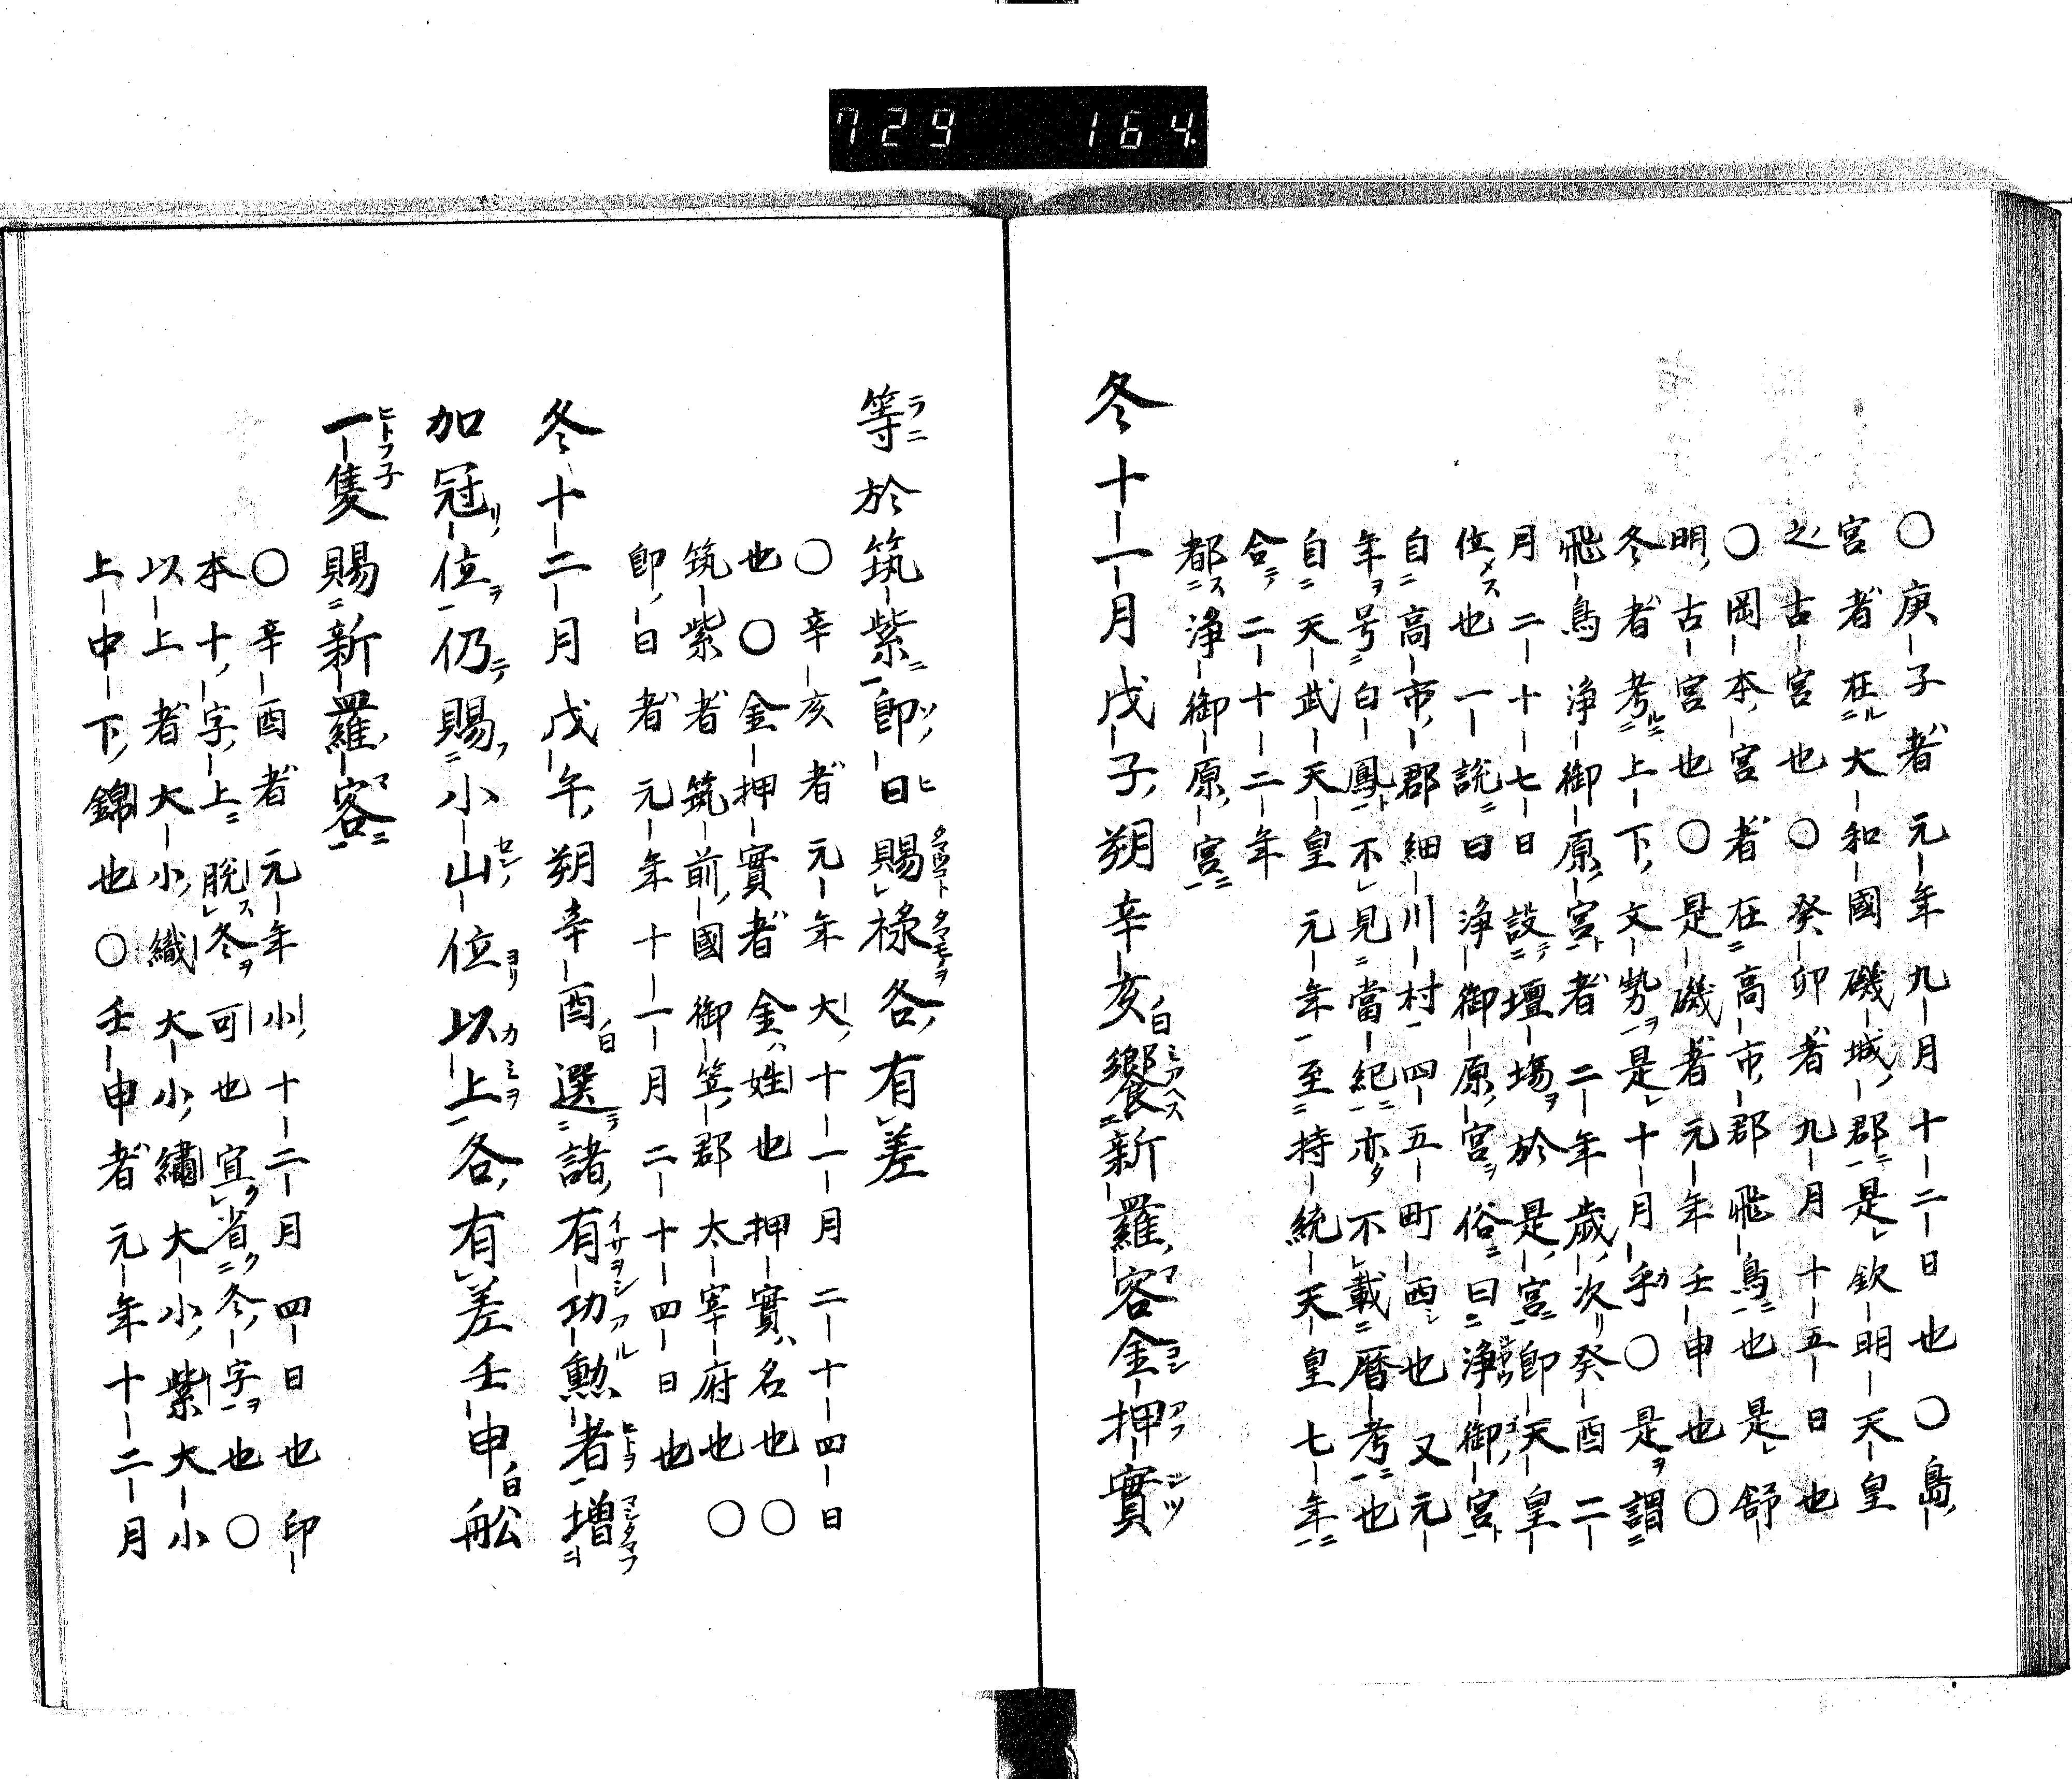 729 164
〇庚子者元年九月十二日也〇島
宮者在大和國磯城郡是欽明天皇
之古宮也〇癸卯者九月十五日也
〇岡本宮者在高市郡飛鳥也是舒
明古宮也〇是磯者元年壬申也〇
冬者考上下文勢是十月乎〇是謂
飛鳥浄御原宮者二年歳次癸酉二
月二十七日設壇場於是宮即天皇
位也一説曰浄御原宮俗曰浄御宮
自高市郡細川村四五町西也又元
年号白鳳不見當紀亦不載暦考也
自天武天皇元年至持統天皇七年
合二十二年
都浄御原宮
冬十一月戊子朔辛亥饗新羅客金押實
等於筑紫即日賜禄各有差
〇辛亥者元年大十一月二十四日
也〇金押實者金姓也押實名也〇
筑紫者筑前國御笠郡太宰府也〇
即日者元年十一月二十四日也
冬十二月戊午朔辛酉選諸有功勲者増
加冠位仍賜小山位以上各有差壬申舩
一隻賜新羅客
〇辛酉者元年小十二月四日也印
本十字上脱冬可也宜省冬字也〇
以上者大小織大小繡大小紫大小
上中下錦也〇壬申者元年十二月